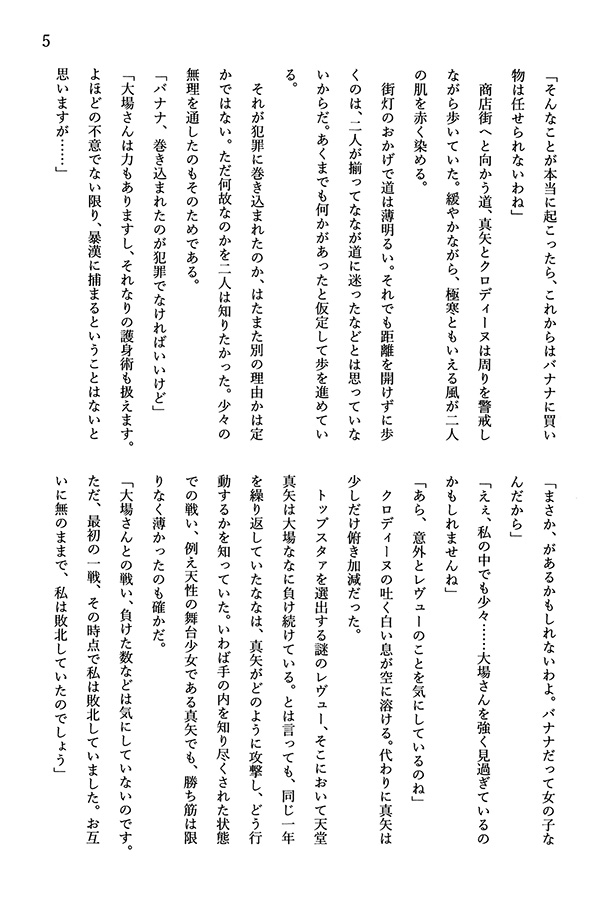 5
「そんなことが本当に起こったら、これからはバナナに買い
物は任せられないわね」
　商店街へと向かう道、真矢とクロディーヌは周りを警戒し
ながら歩いていた。緩やかながら、極寒ともいえる風が二人
の肌を赤く染める。
　街灯のおかげで道は薄明るい。それでも距離を開けずに歩
くのは、二人が揃ってななが道に迷ったなどとは思っていな
いからだ。あくまでも何かがあったと仮定して歩を進めてい
る。
　それが犯罪に巻き込まれたのか、はたまた別の理由かは定
かではない。ただ何故なのかを二人は知りたかった。少々の
無理を通したのもそのためである。
「バナナ、巻き込まれたのが犯罪でなければいいけど」
「大場さんは力もありますし、それなりの護身術も扱えます。
よほどの不意でない限り、暴漢に捕まるということはないと
思いますが……」
「まさか、があるかもしれないわよ。バナナだって女の子な
んだから」
「えぇ、私の中でも少々……大場さんを強く見過ぎているの
かもしれませんね」
「あら、意外とレヴューのことを気にしているのね」
　クロディーヌの吐く白い息が空に溶ける。代わりに真矢は
少しだけ俯き加減だった。
　トップスタァを選出する謎のレヴュー、そこにおいて天堂
真矢は大場ななに負け続けている。とは言っても、同じ一年
を繰り返していたななは、真矢がどのように攻撃し、どう行
動するかを知っていた。いわば手の内を知り尽くされた状態
での戦い、例え天性の舞台少女である真矢でも、勝ち筋は限
りなく薄かったのも確かだ。
「大場さんとの戦い、負けた数などは気にしていないのです。
ただ、最初の一戦、その時点で私は敗北していました。お互
いに無のままで、私は敗北していたのでしょう」